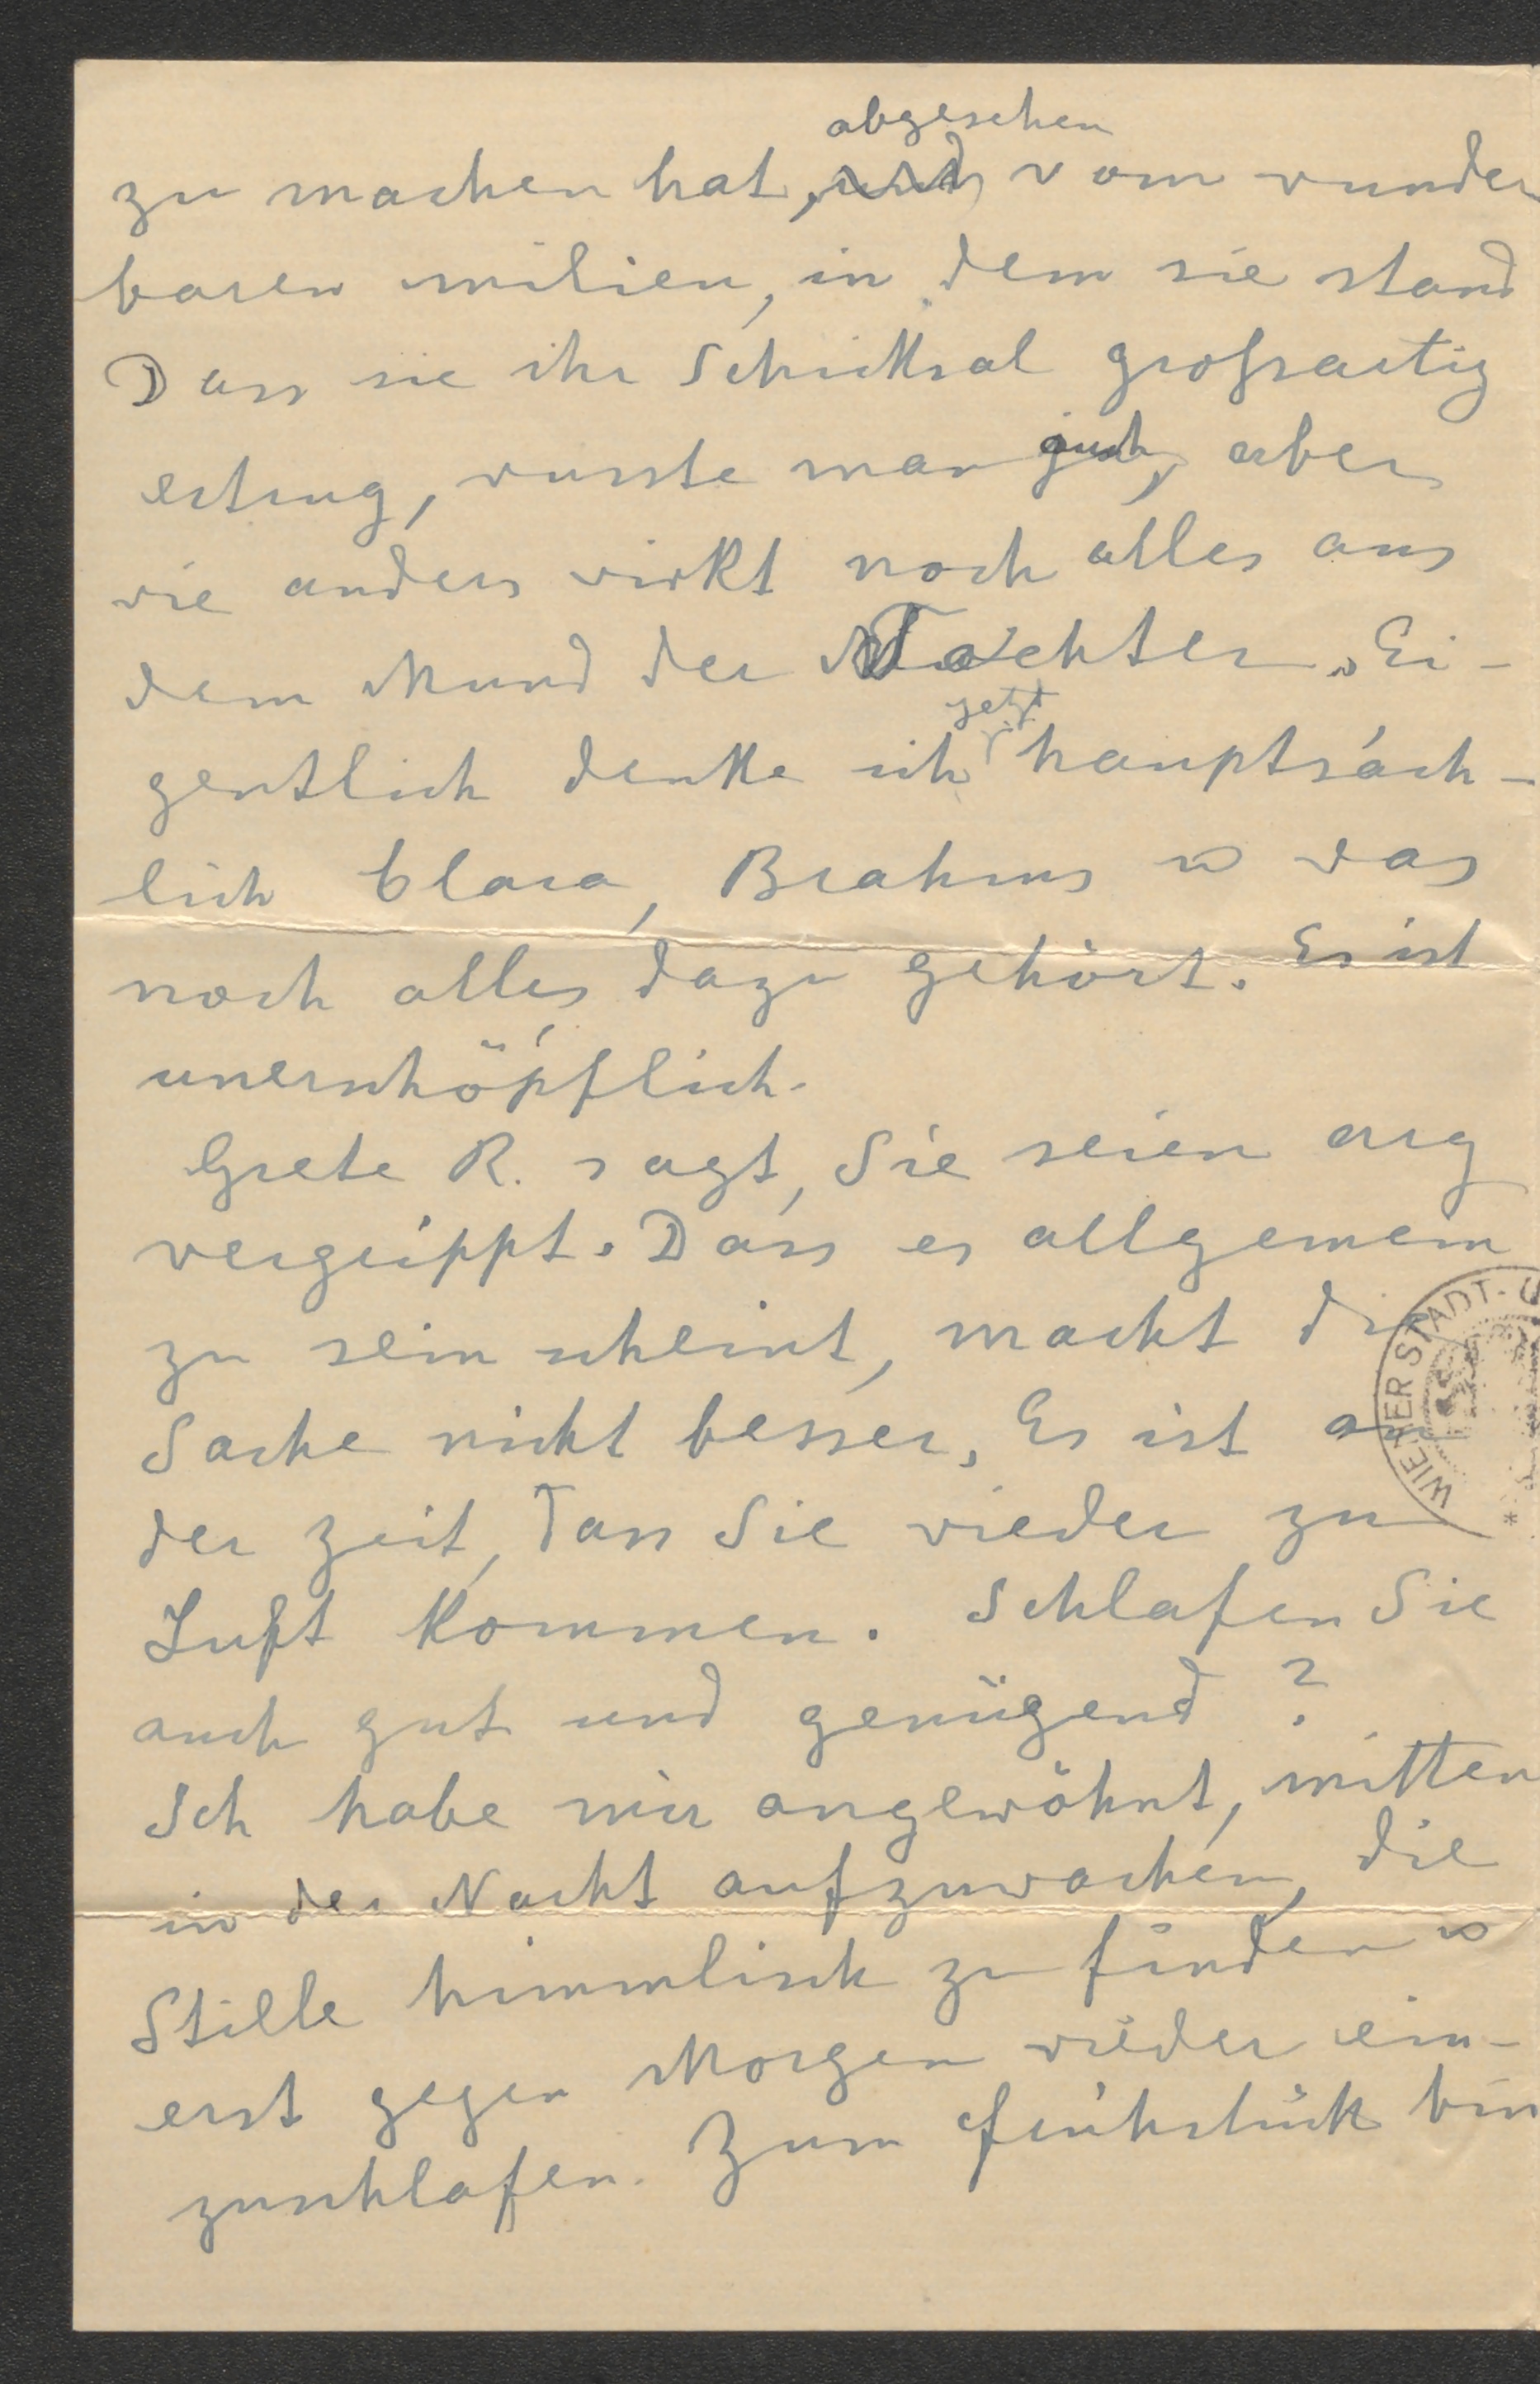 abgesehen
zu machen hat, und vom wunder
baren milieu, in dem sie stand
Dass sie ihr Schicksal großartig
ertrug, wusste man auch, aber
wie anders wirkt noch alles aus
dem Mund der Tochter. Ei-
jetzt
gentlich denke ich hauptsäch-
lich Clara, Brahms u was
noch alles dazu gehört. Es ist
unerschöpflich.
Grete R. sagt, Sie seien arg
vergrippt. Dass es allgemein
zu sein scheint, macht die
Sache nicht besser. Es ist an
der Zeit, dass Sie wieder zu
Luft kommen. Schlafen Sie
auch gut und genügend?
Ich habe mir angewöhnt, mitten
in der Nacht aufzuwachen, die
Stille himmlisch zu finden u
erst gegen Morgen wieder ein-
zuschlafen. Zum Frühstück bin
WIENER STADT-